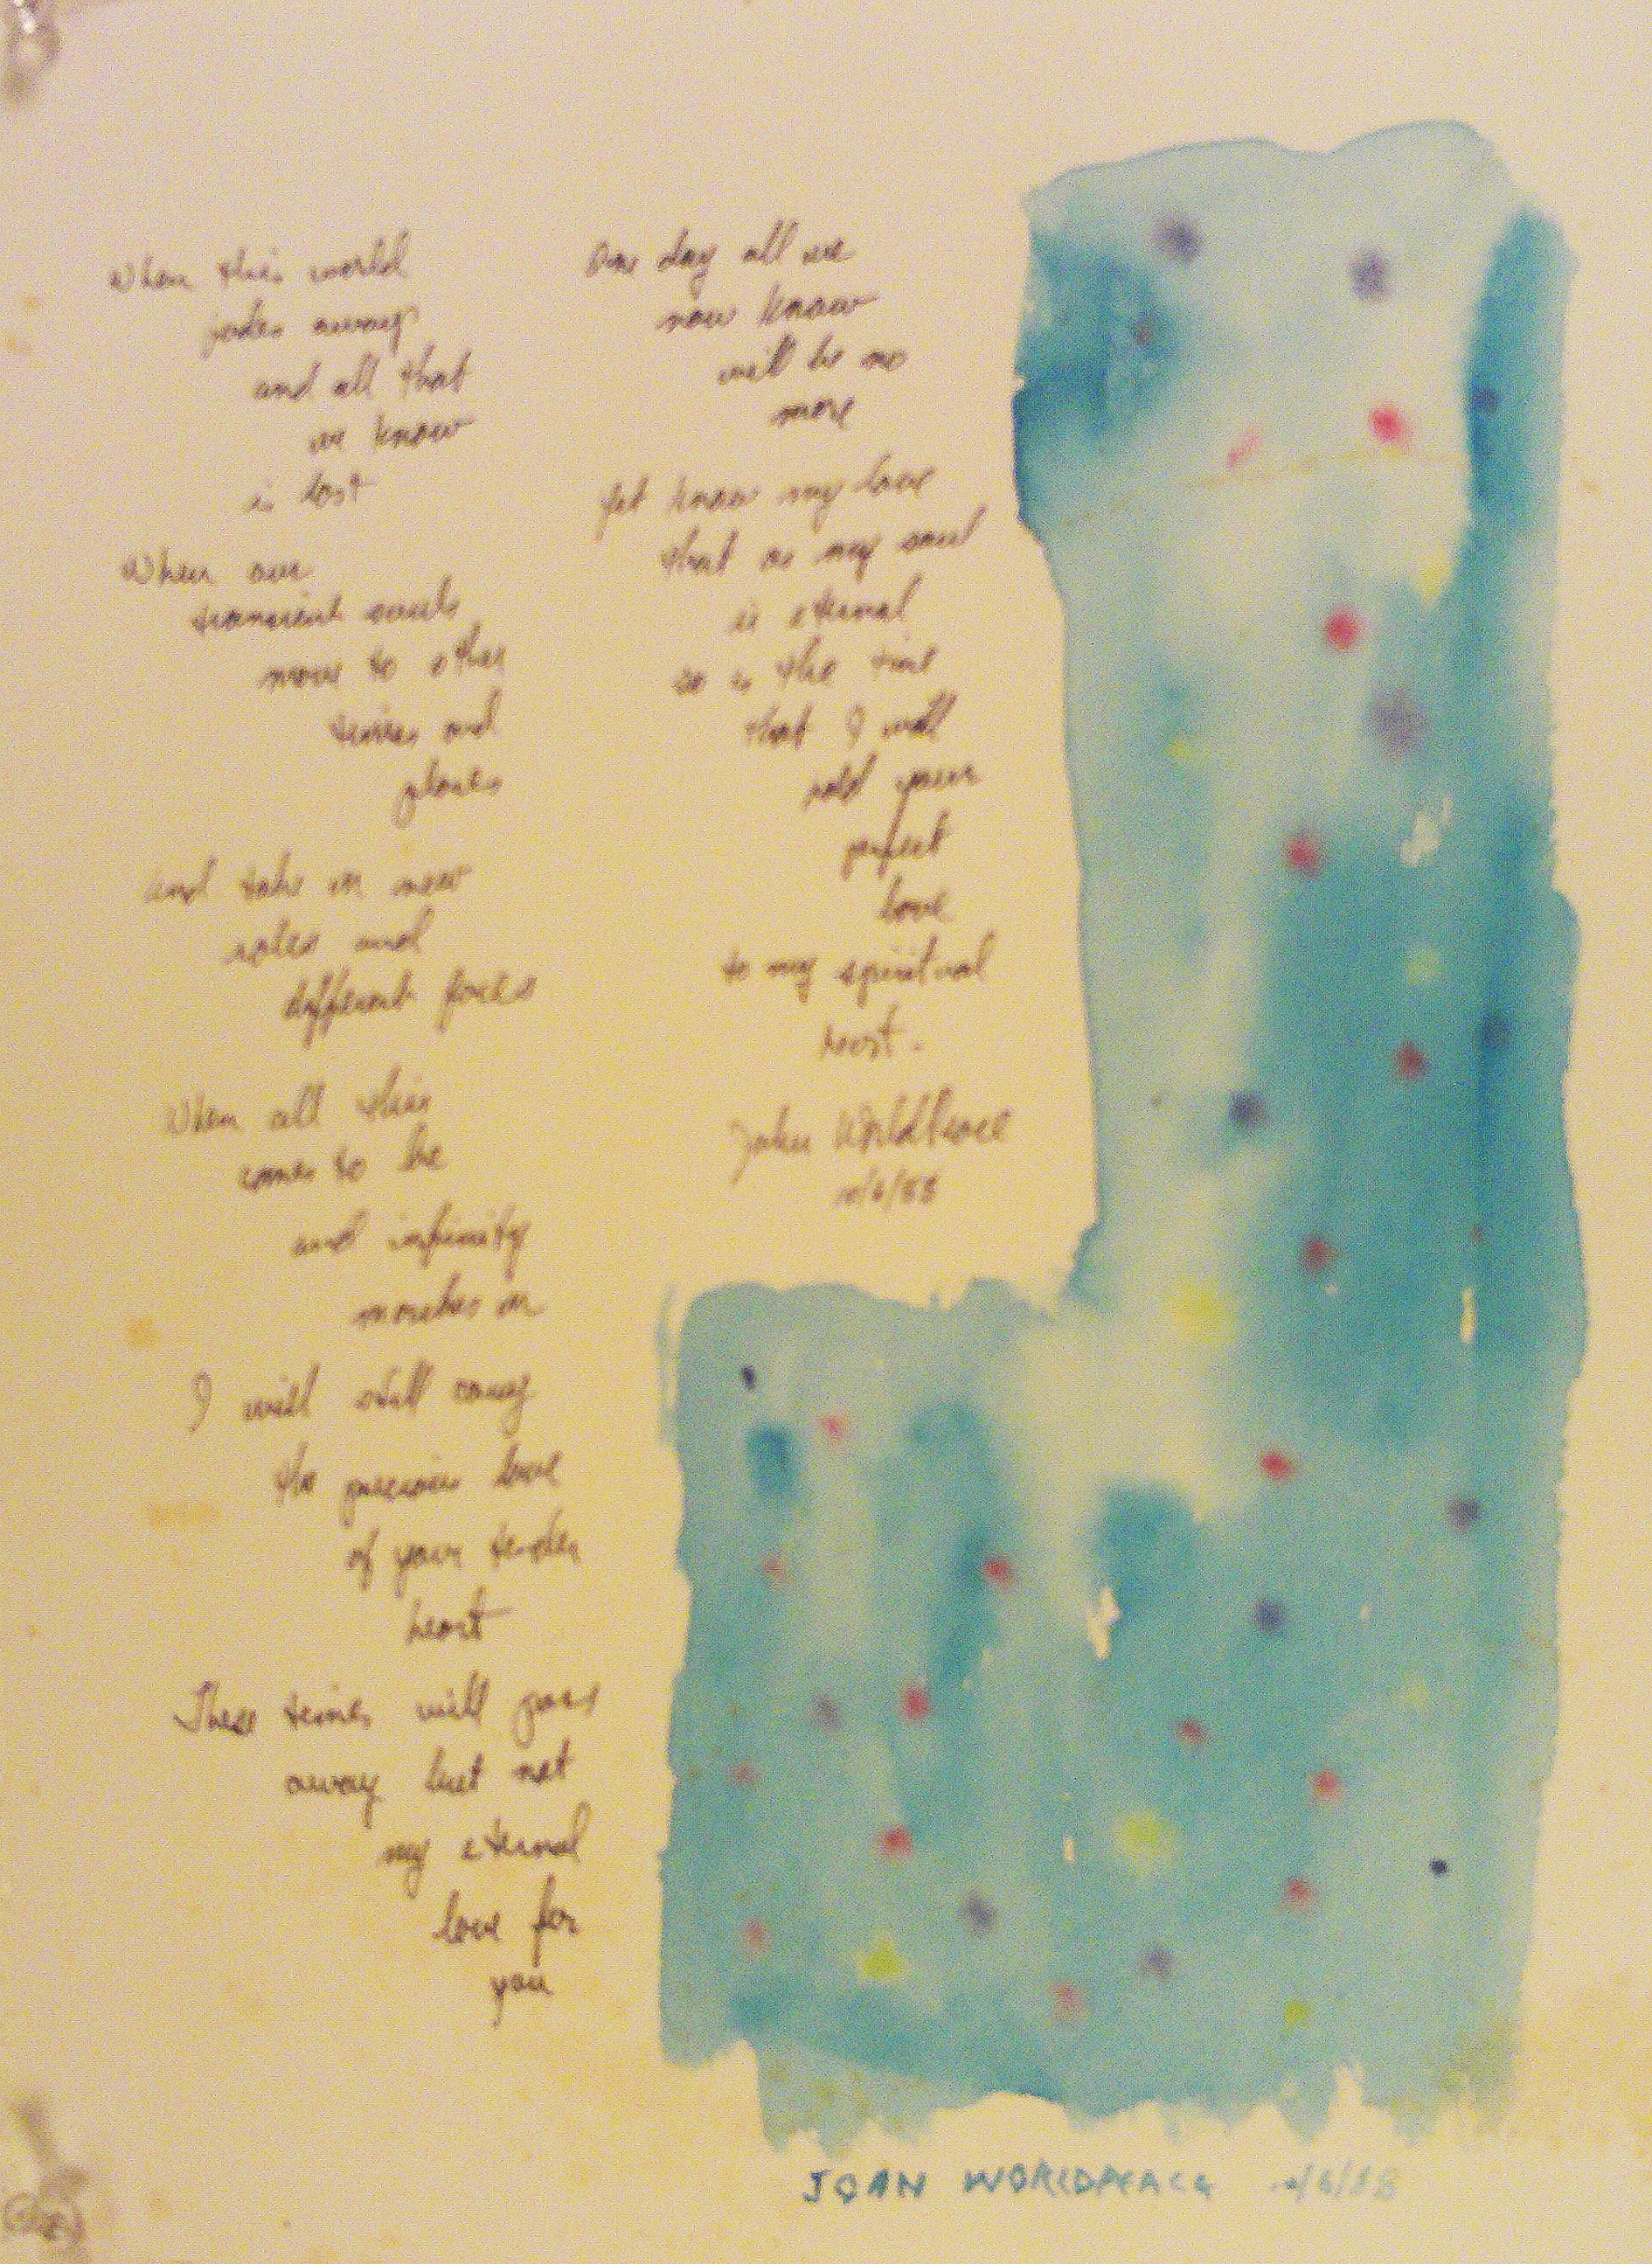 When this world
fades away
and all that
we know
is lost
When our
transient souls
move to other
times and
places
and take on new
roles and
different faces
When all this
comes to be
and infinity
marches on
I will still carry
the precious love
of your tender
heart
These times will pass
away but not
my eternal
love for
you
One day all we
now know
will be no
more
Yet know my love
that as my soul
is eternal
so is the time
that I will
hold your
perfect
love
to my spiritual
breast.
John WorldPeace
/6/88
JOHN WORLDPEACE /6/88